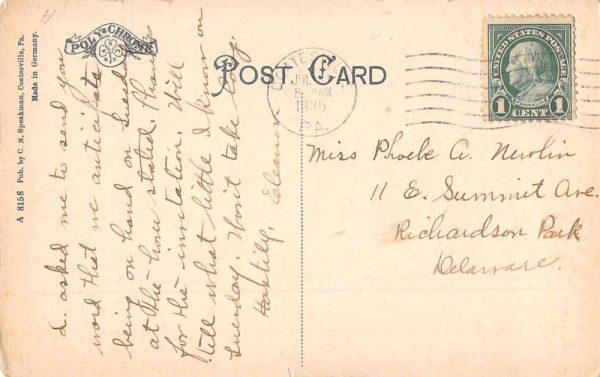 POLY-CHROME
A 8158 Pub. by C. N. Speakman, Coatesville, Pa.
Made in Germany.
POST CARD
COATESVILLE
PA.
UNITED STATES POSTAGE
FRANKLIN
1 CENT 1
L. asked me to send you
word that we anticipate
being on hand on Tuesday
at the hour stated. Thanks
for the invitation. Will
tell what little I know on
Tuesday. Won't take long.
Hastily, Eleanor
Miss Phoebe A. Newlin
11 E. Summit Ave.
Richardson Park
Delaware.